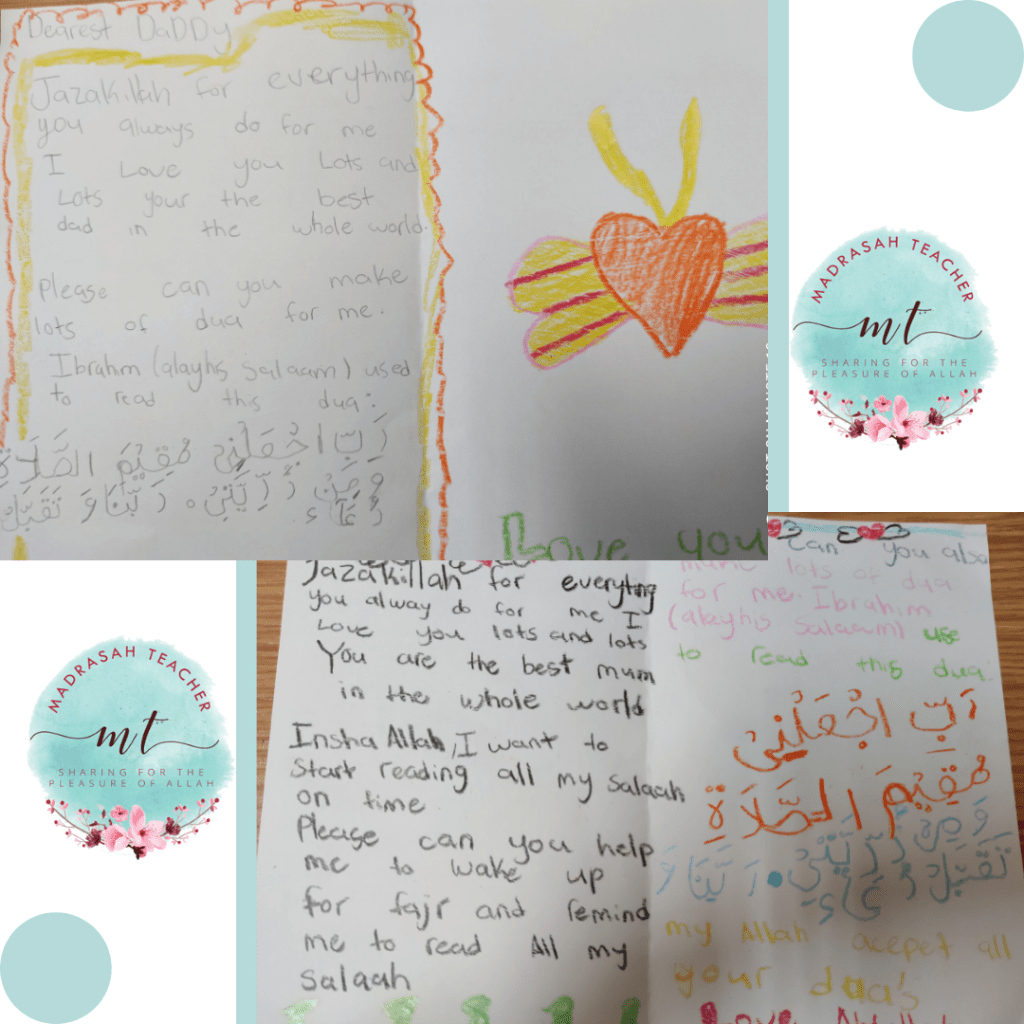 Dearest DaDDy
Jazakillah for everything
you always do for me
I Love you Lots and
Lots your the best
dad in the whole world.
please can you make
lots of dua for me.
Ibrahim (alayhis salaam) used
to read this dua:
رَبِّ اجْعَلْنِيْ مُقِيْمَ الصَّلَاةِ
وَمِنْ ذُرِّيَّتِيْ. رَبَّنَا وَ تَقَبَّلْ
دُعَاءِ
Love you
MADRASAH TEACHER
mt
SHARING FOR THE
PLEASURE OF ALLAH
MADRASAH TEACHER
mt
SHARING FOR THE
PLEASURE OF ALLAH
Jazakillah for everyting
you alway do for me I
Love you lots and lots
You are the best mum
in the whole world
Insha Allah, I want to
start reading all my salaah
on time
Please can you help
me to wake up
for fajr and remind
me to read All my
salaah
can you also
make lots of dua
for me. Ibrahim
(alayhis salaam) use
to read this dua.
رَبِّ اجْعَلْنِيْ
مُقِيْمَ الصَّلَاةِ
وَ مِنْ ذُرِّيَّتِيْ. رَبَّنَا وَ
تَقَبَّلْ دُعَاءِ
my Allah acepet all
your dua's
Love